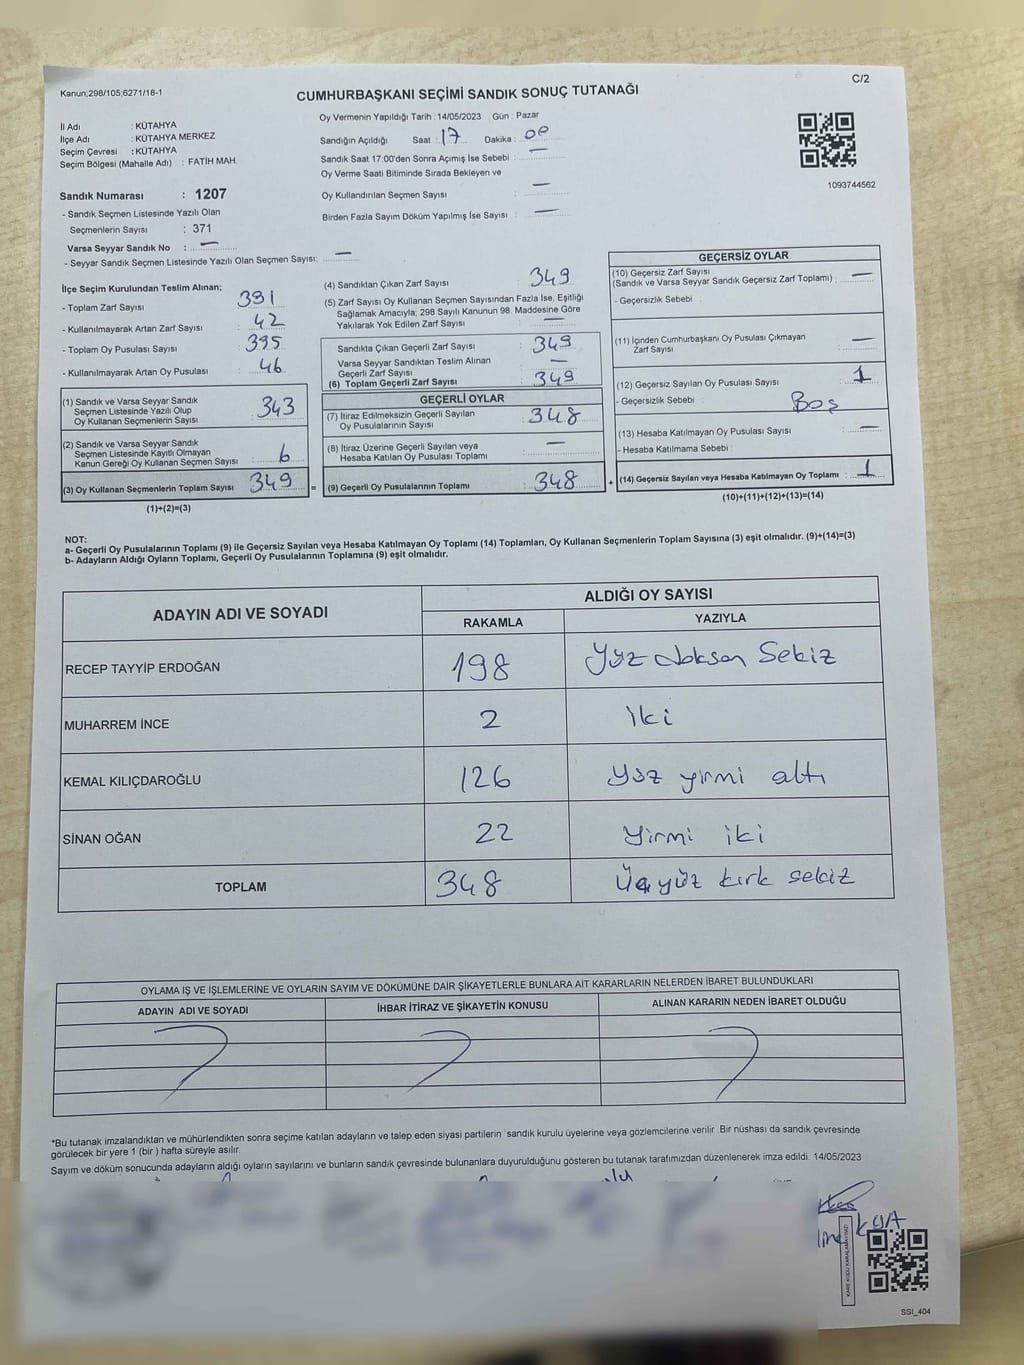 Kanun;298/105;6271/18-1
C/2
CUMHURBAŞKANI SEÇİMİ SANDIK SONUÇ TUTANAĞI
İl Adı : KÜTAHYA
İlçe Adı : KÜTAHYA MERKEZ
Seçim Çevresi : KÜTAHYA
Seçim Bölgesi (Mahalle Adı) : FATİH MAH.
Sandık Numarası : 1207
- Sandık Seçmen Listesinde Yazılı Olan
Seçmenlerin Sayısı : 371
Varsa Seyyar Sandık No : —
- Seyyar Sandık Seçmen Listesinde Yazılı Olan Seçmen Sayısı: —
Oy Vermenin Yapıldığı Tarih : 14/05/2023 Gün : Pazar
Sandığın Açıldığı Saat : 17 Dakika :
Sandık Saat 17.00'den Sonra Açımış İse Sebebi : —
Oy Verme Saati Bitiminde Sırada Bekleyen ve
Oy Kullandırılan Seçmen Sayısı : —
Birden Fazla Sayım Döküm Yapılmış İse Sayısı : —
1093744562
İlçe Seçim Kurulundan Teslim Alınan;
- Toplam Zarf Sayısı : 391
- Kullanılmayarak Artan Zarf Sayısı : 42
- Toplam Oy Pusulası Sayısı : 395
- Kullanılmayarak Artan Oy Pusulası : 46
(1) Sandık ve Varsa Seyyar Sandık
Seçmen Listesinde Yazılı Olup
Oy Kullanan Seçmenlerin Sayısı : 343
(2) Sandık ve Varsa Seyyar Sandık
Seçmen Listesinde Kayıtlı Olmayan
Kanun Gereği Oy Kullanan Seçmen Sayısı : 6
(3) Oy Kullanan Seçmenlerin Toplam Sayısı : 349
(1)+(2)=(3)
(4) Sandıktan Çıkan Zarf Sayısı : 349
(5) Zarf Sayısı Oy Kullanan Seçmen Sayısından Fazla İse, Eşitliği
Sağlamak Amacıyla; 298 Sayılı Kanunun 98. Maddesine Göre
Yakılarak Yok Edilen Zarf Sayısı : —
Sandıkta Çıkan Geçerli Zarf Sayısı : 349
Varsa Seyyar Sandıktan Teslim Alınan
Geçerli Zarf Sayısı : —
(6) Toplam Geçerli Zarf Sayısı : 349
GEÇERLİ OYLAR
(7) İtiraz Edilmeksizin Geçerli Sayılan
Oy Pusulalarının Sayısı : 348
(8) İtiraz Üzerine Geçerli Sayılan veya
Hesaba Katılan Oy Pusulası Toplamı : —
= (9) Geçerli Oy Pusulalarının Toplamı : 348 +
GEÇERSİZ OYLAR
(10) Geçersiz Zarf Sayısı
(Sandık ve Varsa Seyyar Sandık Geçersiz Zarf Toplamı) : —
- Geçersizlik Sebebi :
(11) İçinden Cumhurbaşkanı Oy Pusulası Çıkmayan
Zarf Sayısı : —
(12) Geçersiz Sayılan Oy Pusulası Sayısı : 1
- Geçersizlik Sebebi : Boş
(13) Hesaba Katılmayan Oy Pusulası Sayısı : —
- Hesaba Katılmama Sebebi :
(14) Geçersiz Sayılan veya Hesaba Katılmayan Oy Toplamı : 1
(10)+(11)+(12)+(13)=(14)
NOT:
a- Geçerli Oy Pusulalarının Toplamı (9) ile Geçersiz Sayılan veya Hesaba Katılmayan Oy Toplamı (14) Toplamları, Oy Kullanan Seçmenlerin Toplam Sayısına (3) eşit olmalıdır. (9)+(14)=(3)
b- Adayların Aldığı Oyların Toplamı, Geçerli Oy Pusulalarının Toplamına (9) eşit olmalıdır.
ADAYIN ADI VE SOYADI
ALDIĞI OY SAYISI
RAKAMLA YAZIYLA
RECEP TAYYİP ERDOĞAN 198 Yüz doksan Sekiz
MUHARREM İNCE 2 İki
KEMAL KILIÇDAROĞLU 126 Yüz yirmi altı
SİNAN OĞAN 22 Yirmi iki
TOPLAM 348 Üçyüz kırk sekiz
OYLAMA İŞ VE İŞLEMLERİNE VE OYLARIN SAYIM VE DÖKÜMÜNE DAİR ŞİKAYETLERLE BUNLARA AİT KARARLARIN NELERDEN İBARET BULUNDUKLARI
ADAYIN ADI VE SOYADI İHBAR İTİRAZ VE ŞİKAYETİN KONUSU ALINAN KARARIN NEDEN İBARET OLDUĞU
*Bu tutanak imzalandıktan ve mühürlendikten sonra seçime katılan adayların ve talep eden siyasi partilerin sandık kurulu üyelerine veya gözlemcilerine verilir. Bir nüshası da sandık çevresinde
görülecek bir yere 1 (bir ) hafta süreyle asılır.
Sayım ve döküm sonucunda adayların aldığı oyların sayılarını ve bunların sandık çevresinde bulunanlara duyurulduğunu gösteren bu tutanak tarafımızdan düzenlenerek imza edildi. 14/05/2023
KARE KODU KARALAMAYINIZ!
SSI_404